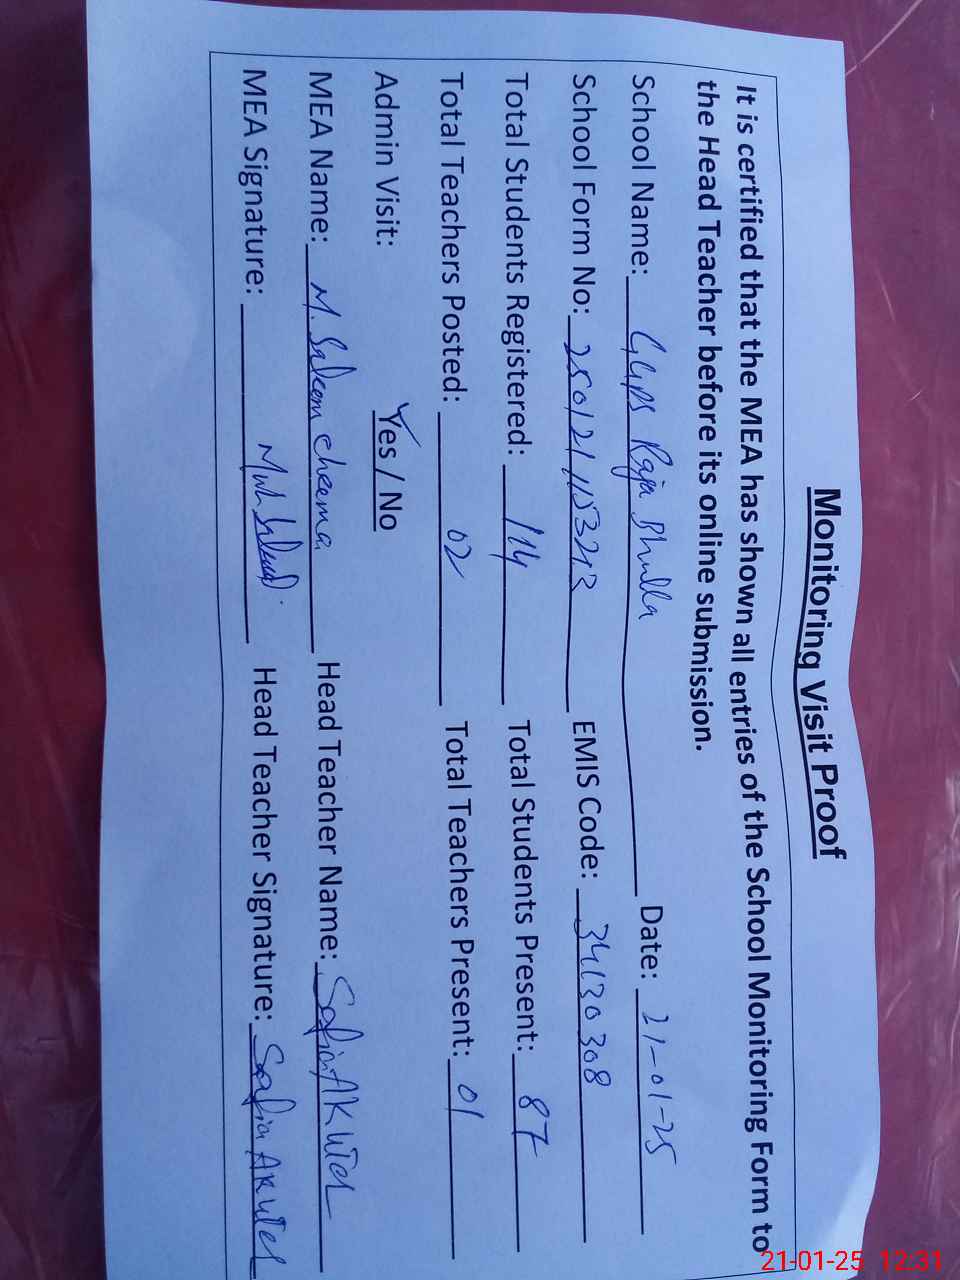 Monitoring Visit Proof
It is certified that the MEA has shown all entries of the School Monitoring Form to
the Head Teacher before its online submission.
School Name: GGPS Raja Bhulla Date: 21-01-25
School Form No: 250121115323 EMIS Code: 34130308
Total Students Registered: 114 Total Students Present: 87
Total Teachers Posted: 02 Total Teachers Present: 01
Admin Visit: Yes / No
MEA Name: M. Saleem Cheema Head Teacher Name: Safia Akhter
MEA Signature: Head Teacher Signature: Safia Akhter
21-01-25 12:31